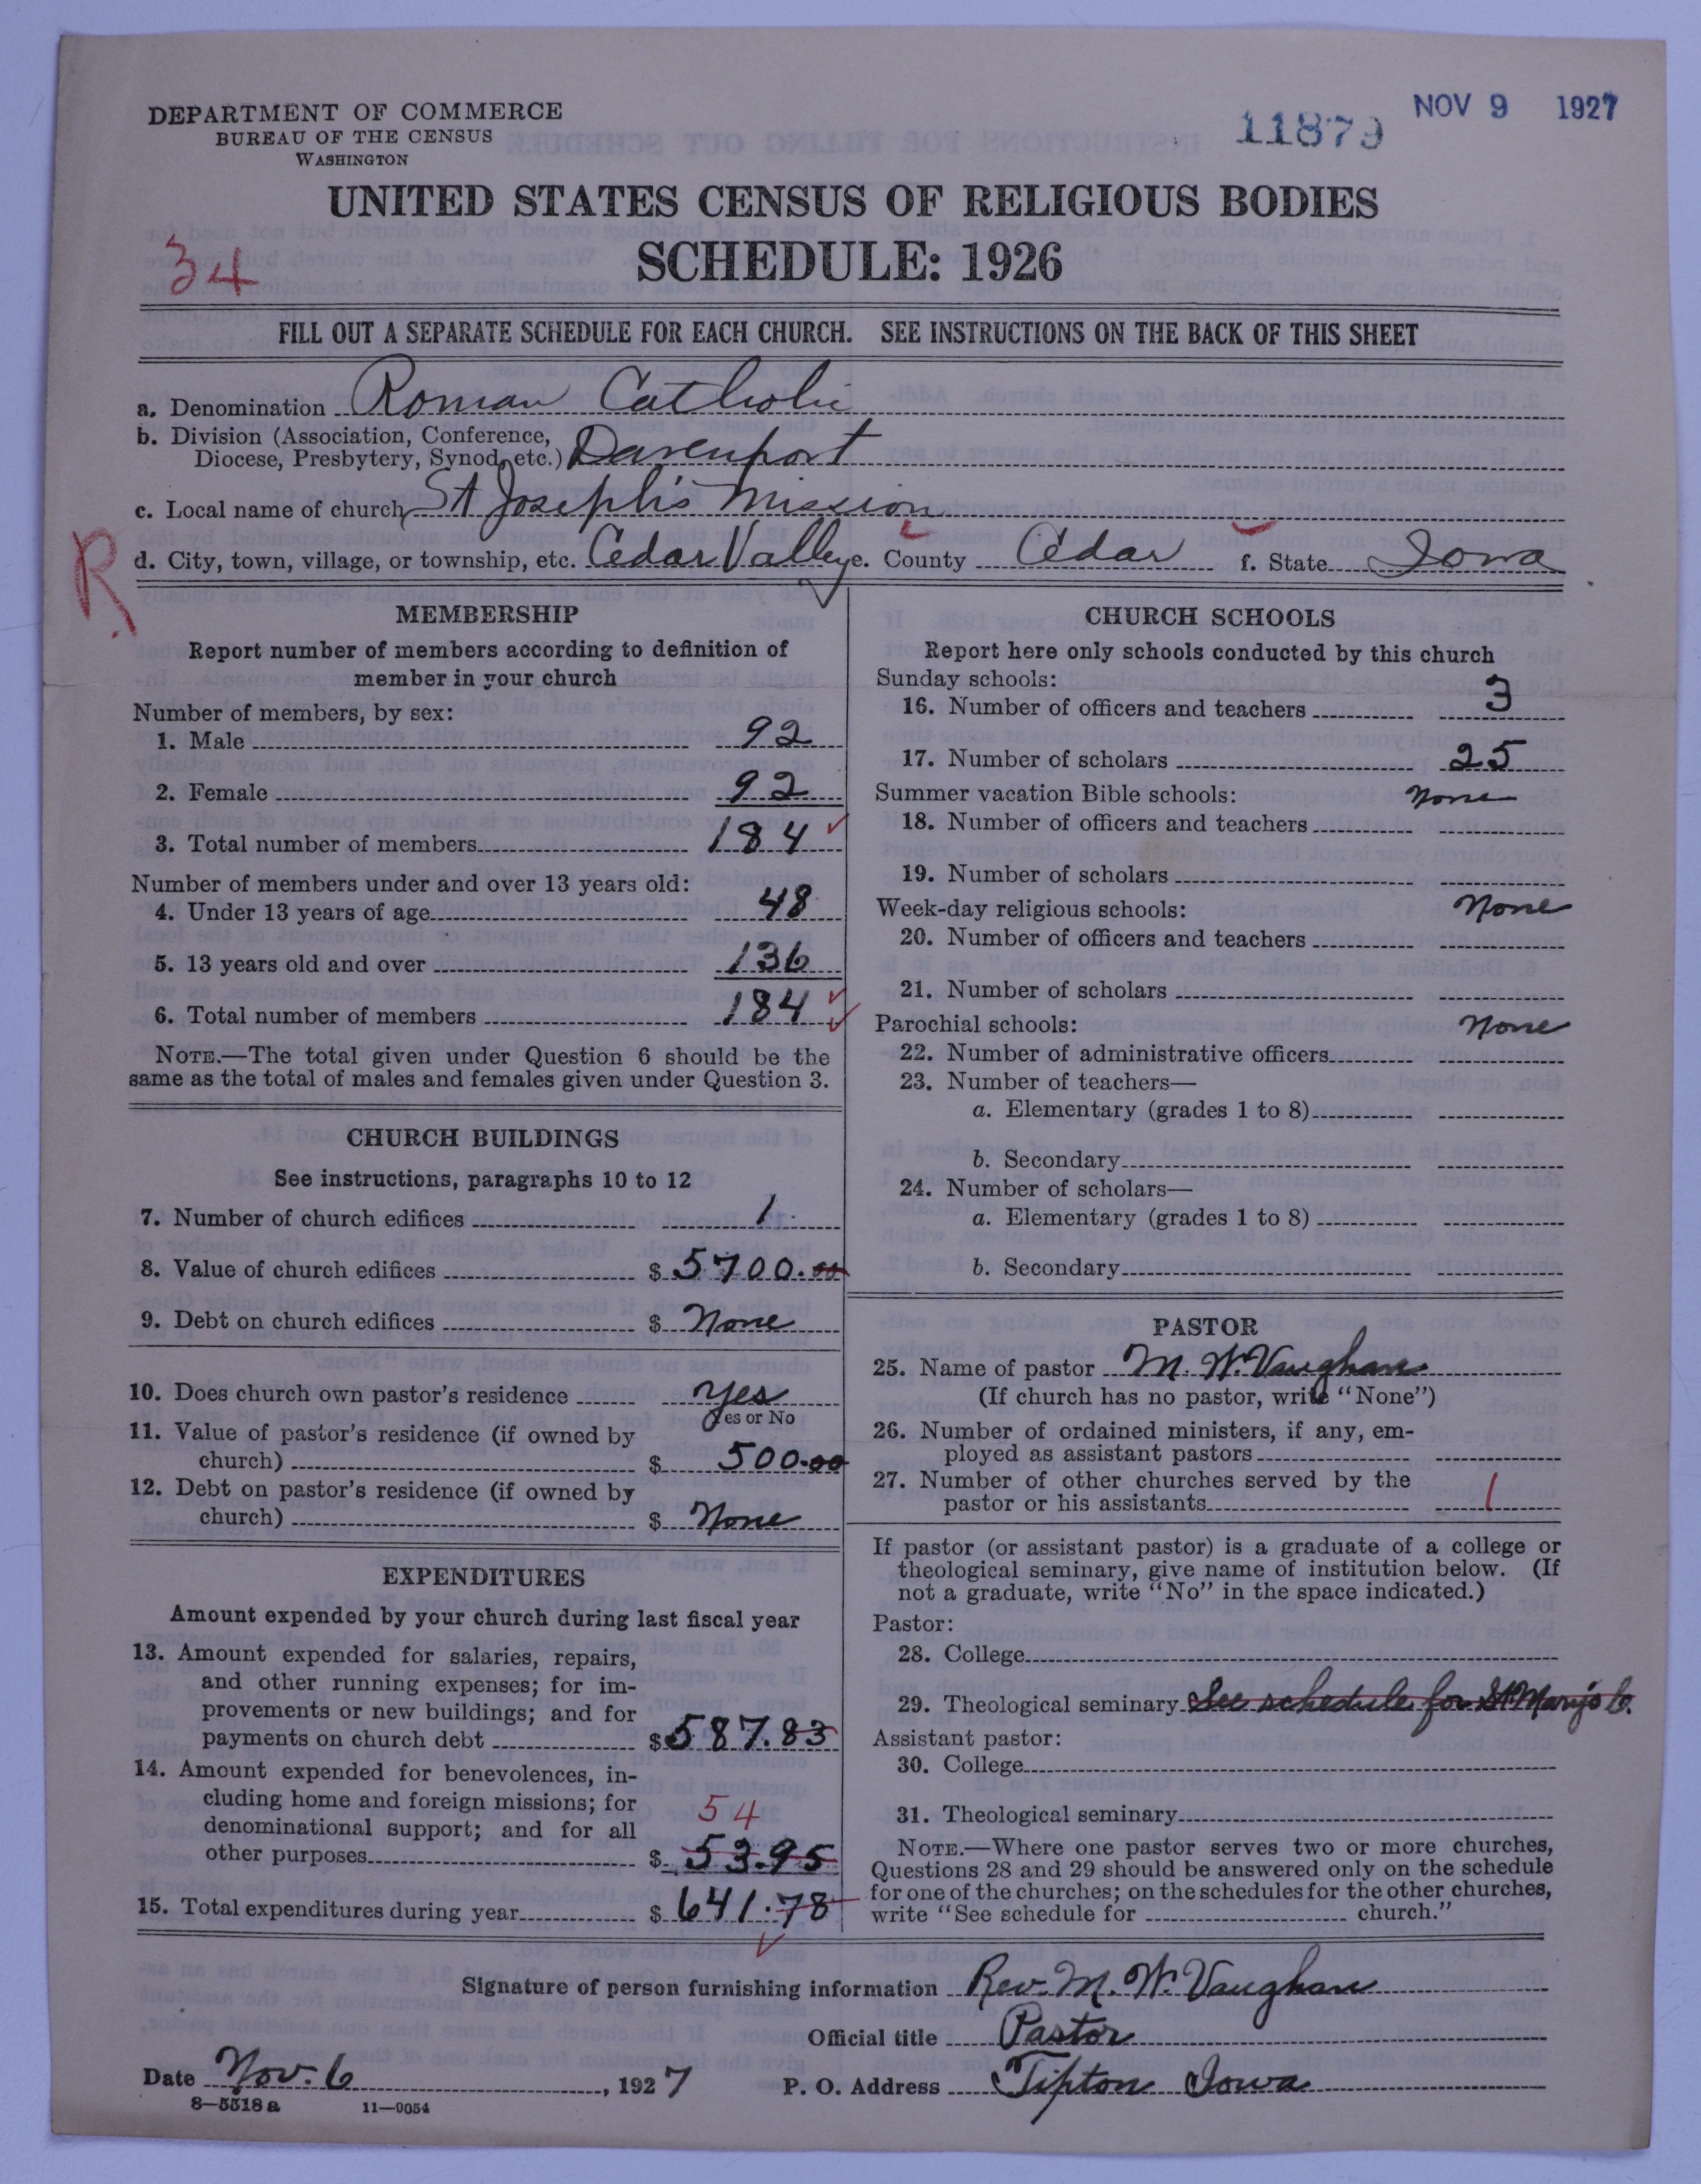 DEPARTMENT OF COMMERCE
BUREAU OF THE CENSUS
WASHINGTON
11879
NOV 9 1927
UNITED STATES CENSUS OF RELIGIOUS BODIES
SCHEDULE: 1926
34
FILL OUT A SEPARATE SCHEDULE FOR EACH CHURCH. SEE INSTRUCTIONS ON THE BACK OF THIS SHEET
a. Denomination Roman Catholic
b. Division (Association, Conference,
Diocese, Presbytery, Synod, etc.) Davenport
c. Local name of church St Joseph's Mission
R.
d. City, town, village, or township, etc. Cedar Valley e. County Cedar f. State Iowa
MEMBERSHIP
Report number of members according to definition of
member in your church
Number of members, by sex:
1. Male 92
2. Female 92
3. Total number of members 184
Number of members under and over 13 years old:
4. Under 13 years of age 48
5. 13 years old and over 136
6. Total number of members 184
NOTE.—The total given under Question 6 should be the
same as the total of males and females given under Question 3.
CHURCH BUILDINGS
See instructions, paragraphs 10 to 12
7. Number of church edifices 1
8. Value of church edifices $ 5700.00
9. Debt on church edifices $ None
10. Does church own pastor's residence yes
Yes or No
11. Value of pastor's residence (if owned by
church) $ 500.00
12. Debt on pastor's residence (if owned by
church) $ None
EXPENDITURES
Amount expended by your church during last fiscal year
13. Amount expended for salaries, repairs,
and other running expenses; for im-
provements or new buildings; and for
payments on church debt $ 587.83
14. Amount expended for benevolences, in-
cluding home and foreign missions; for
denominational support; and for all
54
other purposes $ 53.95
15. Total expenditures during year $ 641.78
CHURCH SCHOOLS
Report here only schools conducted by this church
Sunday schools:
16. Number of officers and teachers 3
17. Number of scholars 25
Summer vacation Bible schools: None
18. Number of officers and teachers
19. Number of scholars
Week-day religious schools: None
20. Number of officers and teachers
21. Number of scholars
Parochial schools: None
22. Number of administrative officers
23. Number of teachers—
a. Elementary (grades 1 to 8)
b. Secondary
24. Number of scholars—
a. Elementary (grades 1 to 8)
b. Secondary
PASTOR
25. Name of pastor M. W. Vaughan
(If church has no pastor, write "None")
26. Number of ordained ministers, if any, em-
ployed as assistant pastors
27. Number of other churches served by the
pastor or his assistants 1
If pastor (or assistant pastor) is a graduate of a college or
theological seminary, give name of institution below. (If
not a graduate, write "No" in the space indicated.)
Pastor:
28. College
29. Theological seminary See schedule for St Mary's C.
Assistant pastor:
30. College
31. Theological seminary
NOTE.—Where one pastor serves two or more churches,
Questions 28 and 29 should be answered only on the schedule
for one of the churches; on the schedules for the other churches,
write "See schedule for church."
Signature of person furnishing information Rev. M. W. Vaughan
Official title Pastor
Date Nov. 6, 1927 P. O. Address Tipton Iowa
8—5518 a 11—9054